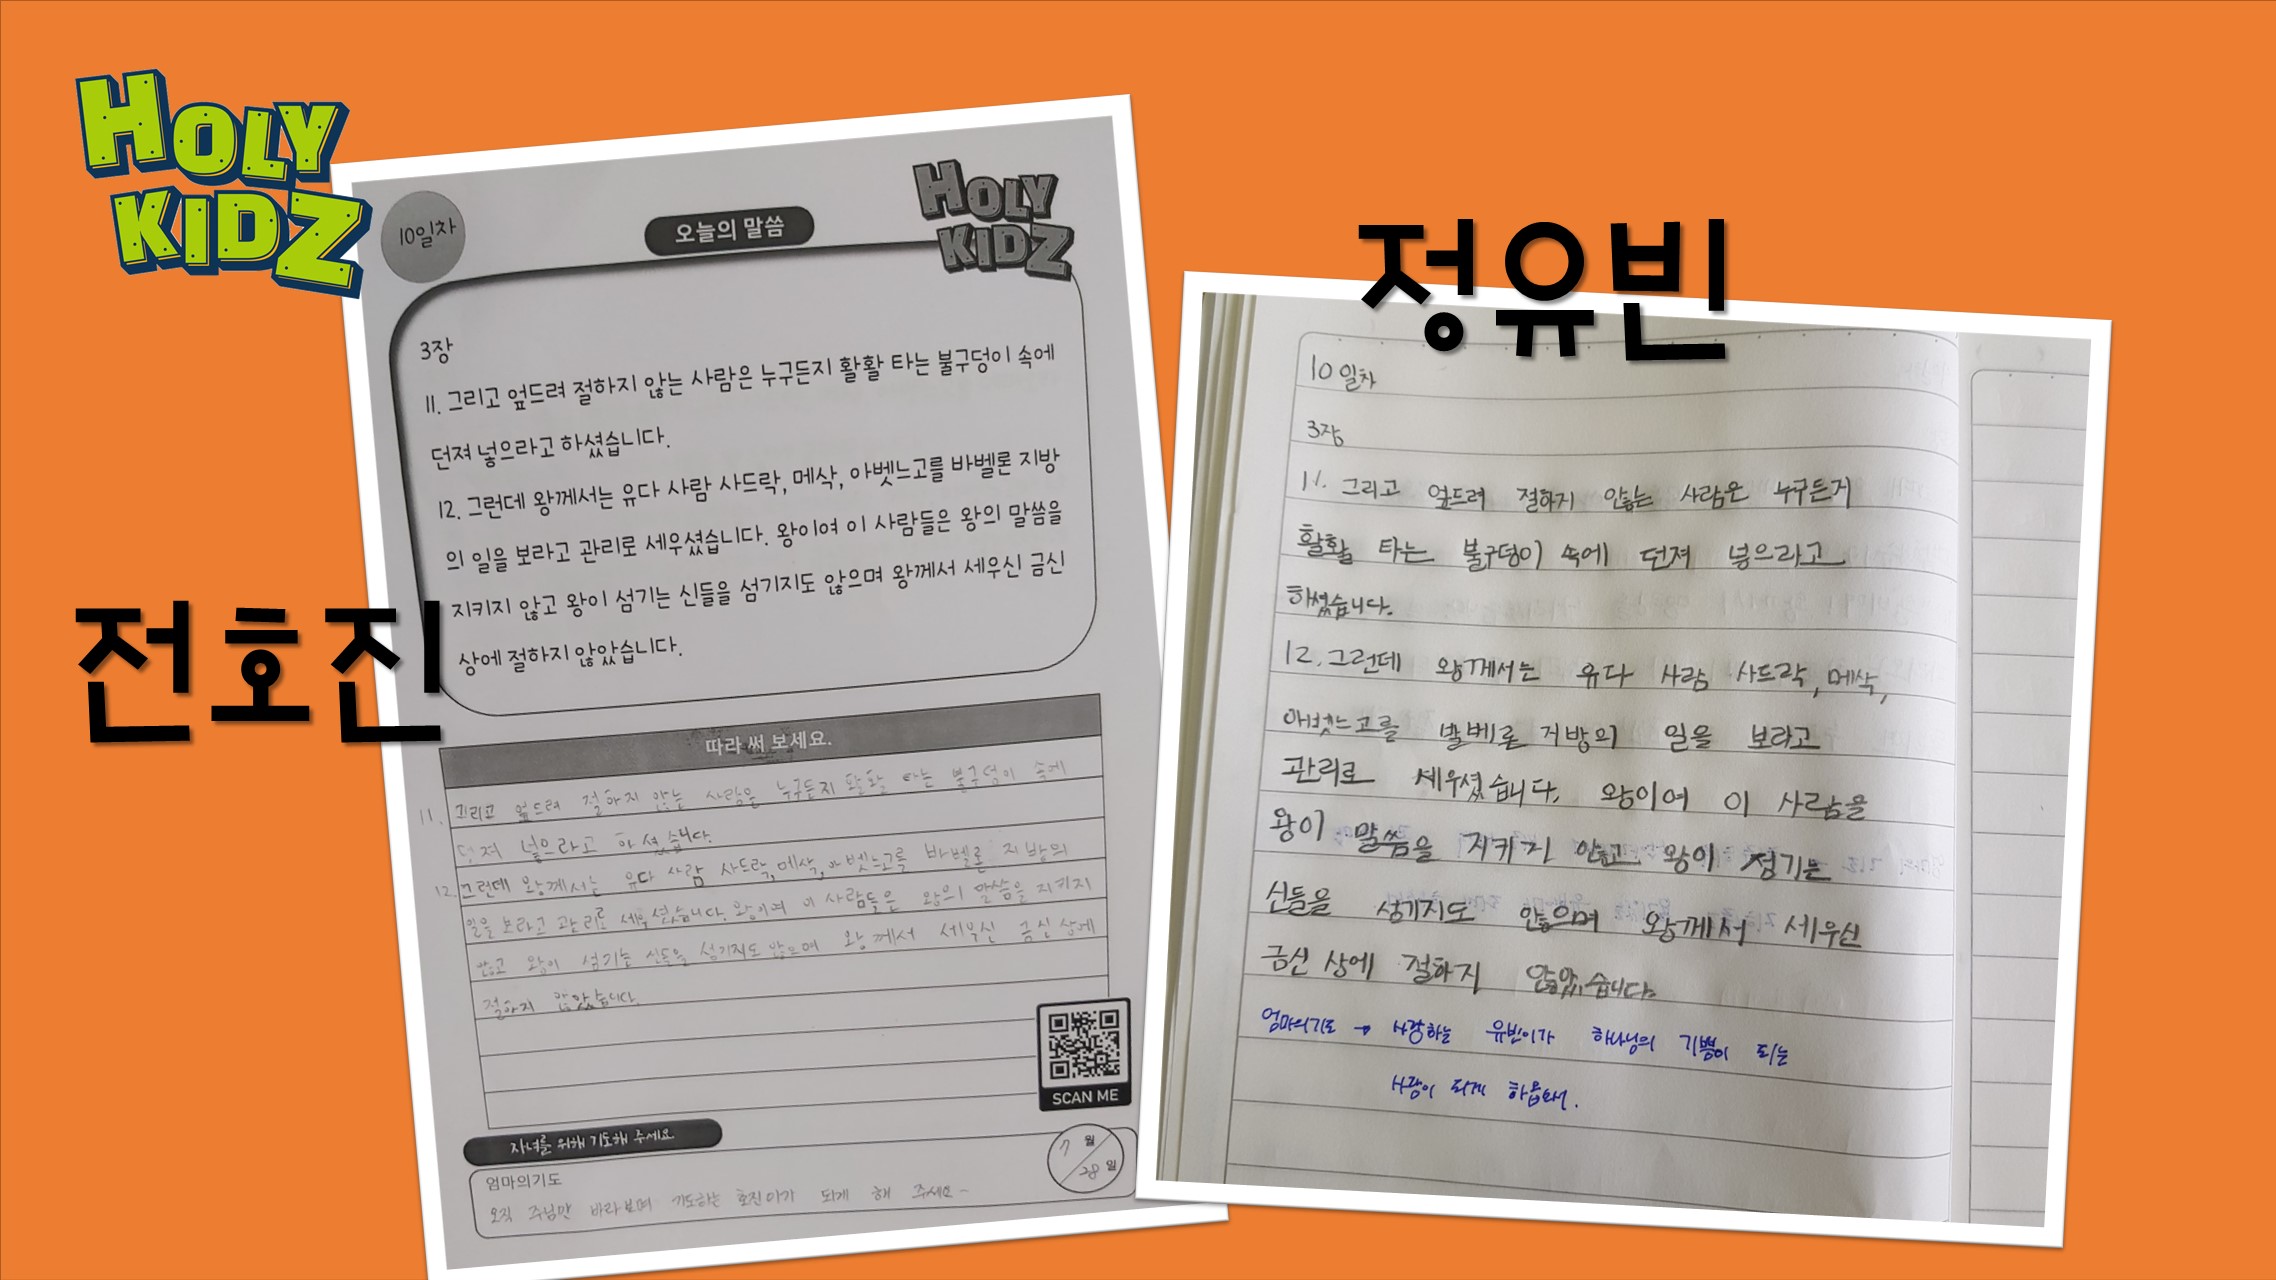 HOLY
KIDZ
전호진
10일차
오늘의 말씀
HOLY
KIDZ
3장
11. 그리고 엎드려 절하지 않는 사람은 누구든지 활활 타는 불구덩이 속에
던져 넣으라고 하셨습니다.
12. 그런데 왕께서는 유다 사람 사드락, 메삭, 아벳느고를 바벨론 지방
의 일을 보라고 관리로 세우셨습니다. 왕이여 이 사람들은 왕의 말씀을
지키지 않고 왕이 섬기는 신들을 섬기지도 않으며 왕께서 세우신 금신
상에 절하지 않았습니다.
따라 써 보세요.
11. 그리고 엎드려 절하지 않는 사람은 누구든지 활활 타는 불구덩이 속에
던져 넣으라고 하셨습니다.
12. 그런데 왕께서는 유다 사람 사드락, 메삭, 아벳느고를 바벨론 지방의
일을 보라고 관리로 세우셨습니다. 왕이여 이 사람들은 왕의 말씀을 지키지
않고 왕이 섬기는 신들을 섬기지도 않으며 왕께서 세우신 금신 상에
절하지 않았습니다.
SCAN ME
자녀를 위해 기도해 주세요
7월
28일
엄마의기도
오직 주님만 바라보며 기도하는 호진이가 되게 해 주세요~
정유빈
10일차
3장
11. 그리고 엎드려 절하지 않는 사람은 누구든지
활활 타는 불구덩이 속에 던져 넣으라고
하셨습니다.
12. 그런데 왕께서는 유다 사람 사드락, 메삭,
아벳느고를 발베론 지방의 일을 보라고
관리로 세우셨습니다. 왕이여 이 사람을
왕이 말씀을 지키지 않고 왕이 섬기는
신들을 섬기지도 않으며 왕께서 세우신
금신 상에 절하지 않았습니다.
엄마의기도 → 사랑하는 유빈이가 하나님의 기쁨이 되는
사람이 되게 하옵소서.